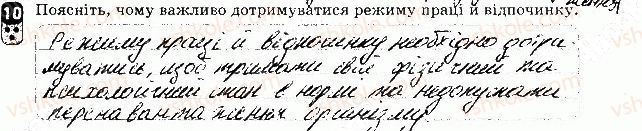 10 Поясніть, чому важливо дотримуватися режиму праці й відпочинку.
Режиму праці й відпочинку необхідно дотри
муватись, щоб тримати свій фізичний та
психологічний стан в нормі та недопускати
перенавантаження організму